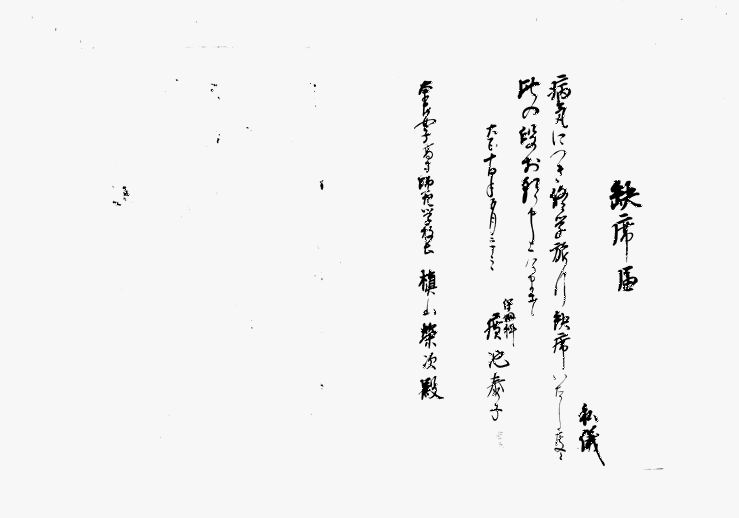 欠席届
私儀
病気につき修学旅行欠席いたし度
此の段お願申し上げます
大正十四年五月二十
保姆科
池泰子
奈良女子高等師範学校長 槇山栄次殿